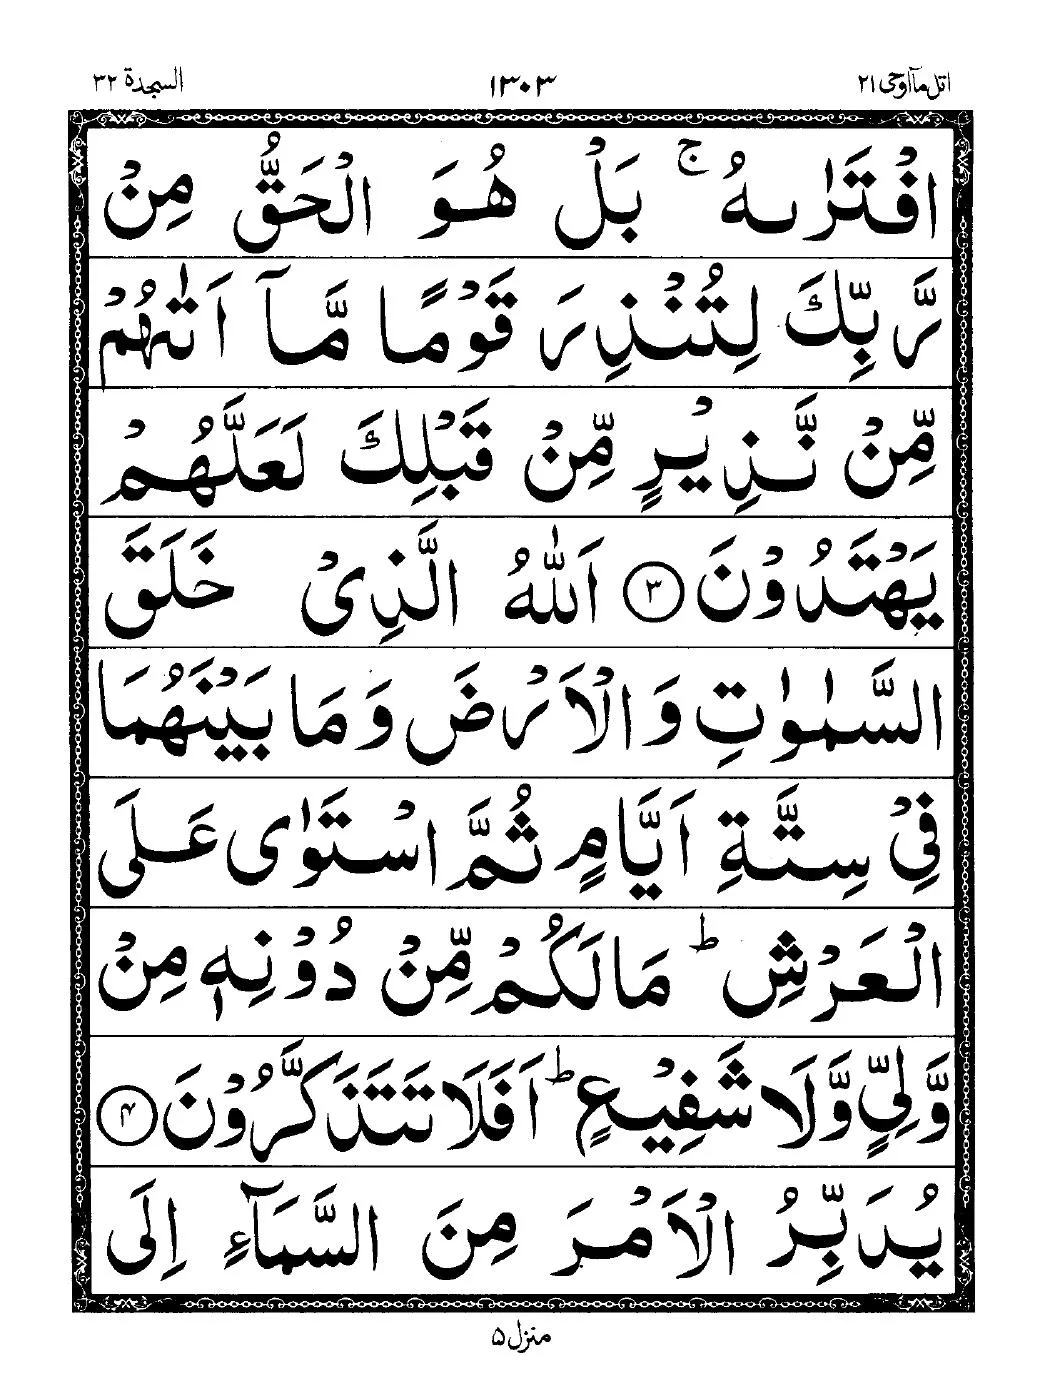 اتل مآاوحی ۲۱ ۱۳۰۳ السجدة ۳۲
افْتَرٰىهُ ۚ بَلْ هُوَ الْحَقُّ مِنْ
رَّبِّكَ لِتُنْذِرَ قَوْمًا مَّآ اَتٰىهُمْ
مِّنْ نَّذِيْرٍ مِّنْ قَبْلِكَ لَعَلَّهُمْ
يَهْتَدُوْنَ ۝۳ اَللّٰهُ الَّذِىْ خَلَقَ
السَّمٰوٰتِ وَالْاَرْضَ وَمَا بَيْنَهُمَا
فِىْ سِتَّةِ اَيَّامٍ ثُمَّ اسْتَوٰى عَلَى
الْعَرْشِ ؕ مَا لَكُمْ مِّنْ دُوْنِهٖ مِنْ
وَّلِىٍّ وَّلَا شَفِيْعٍ ؕ اَفَلَا تَتَذَكَّرُوْنَ ۝۴
يُدَبِّرُ الْاَمْرَ مِنَ السَّمَآءِ اِلَى
منزل ۵